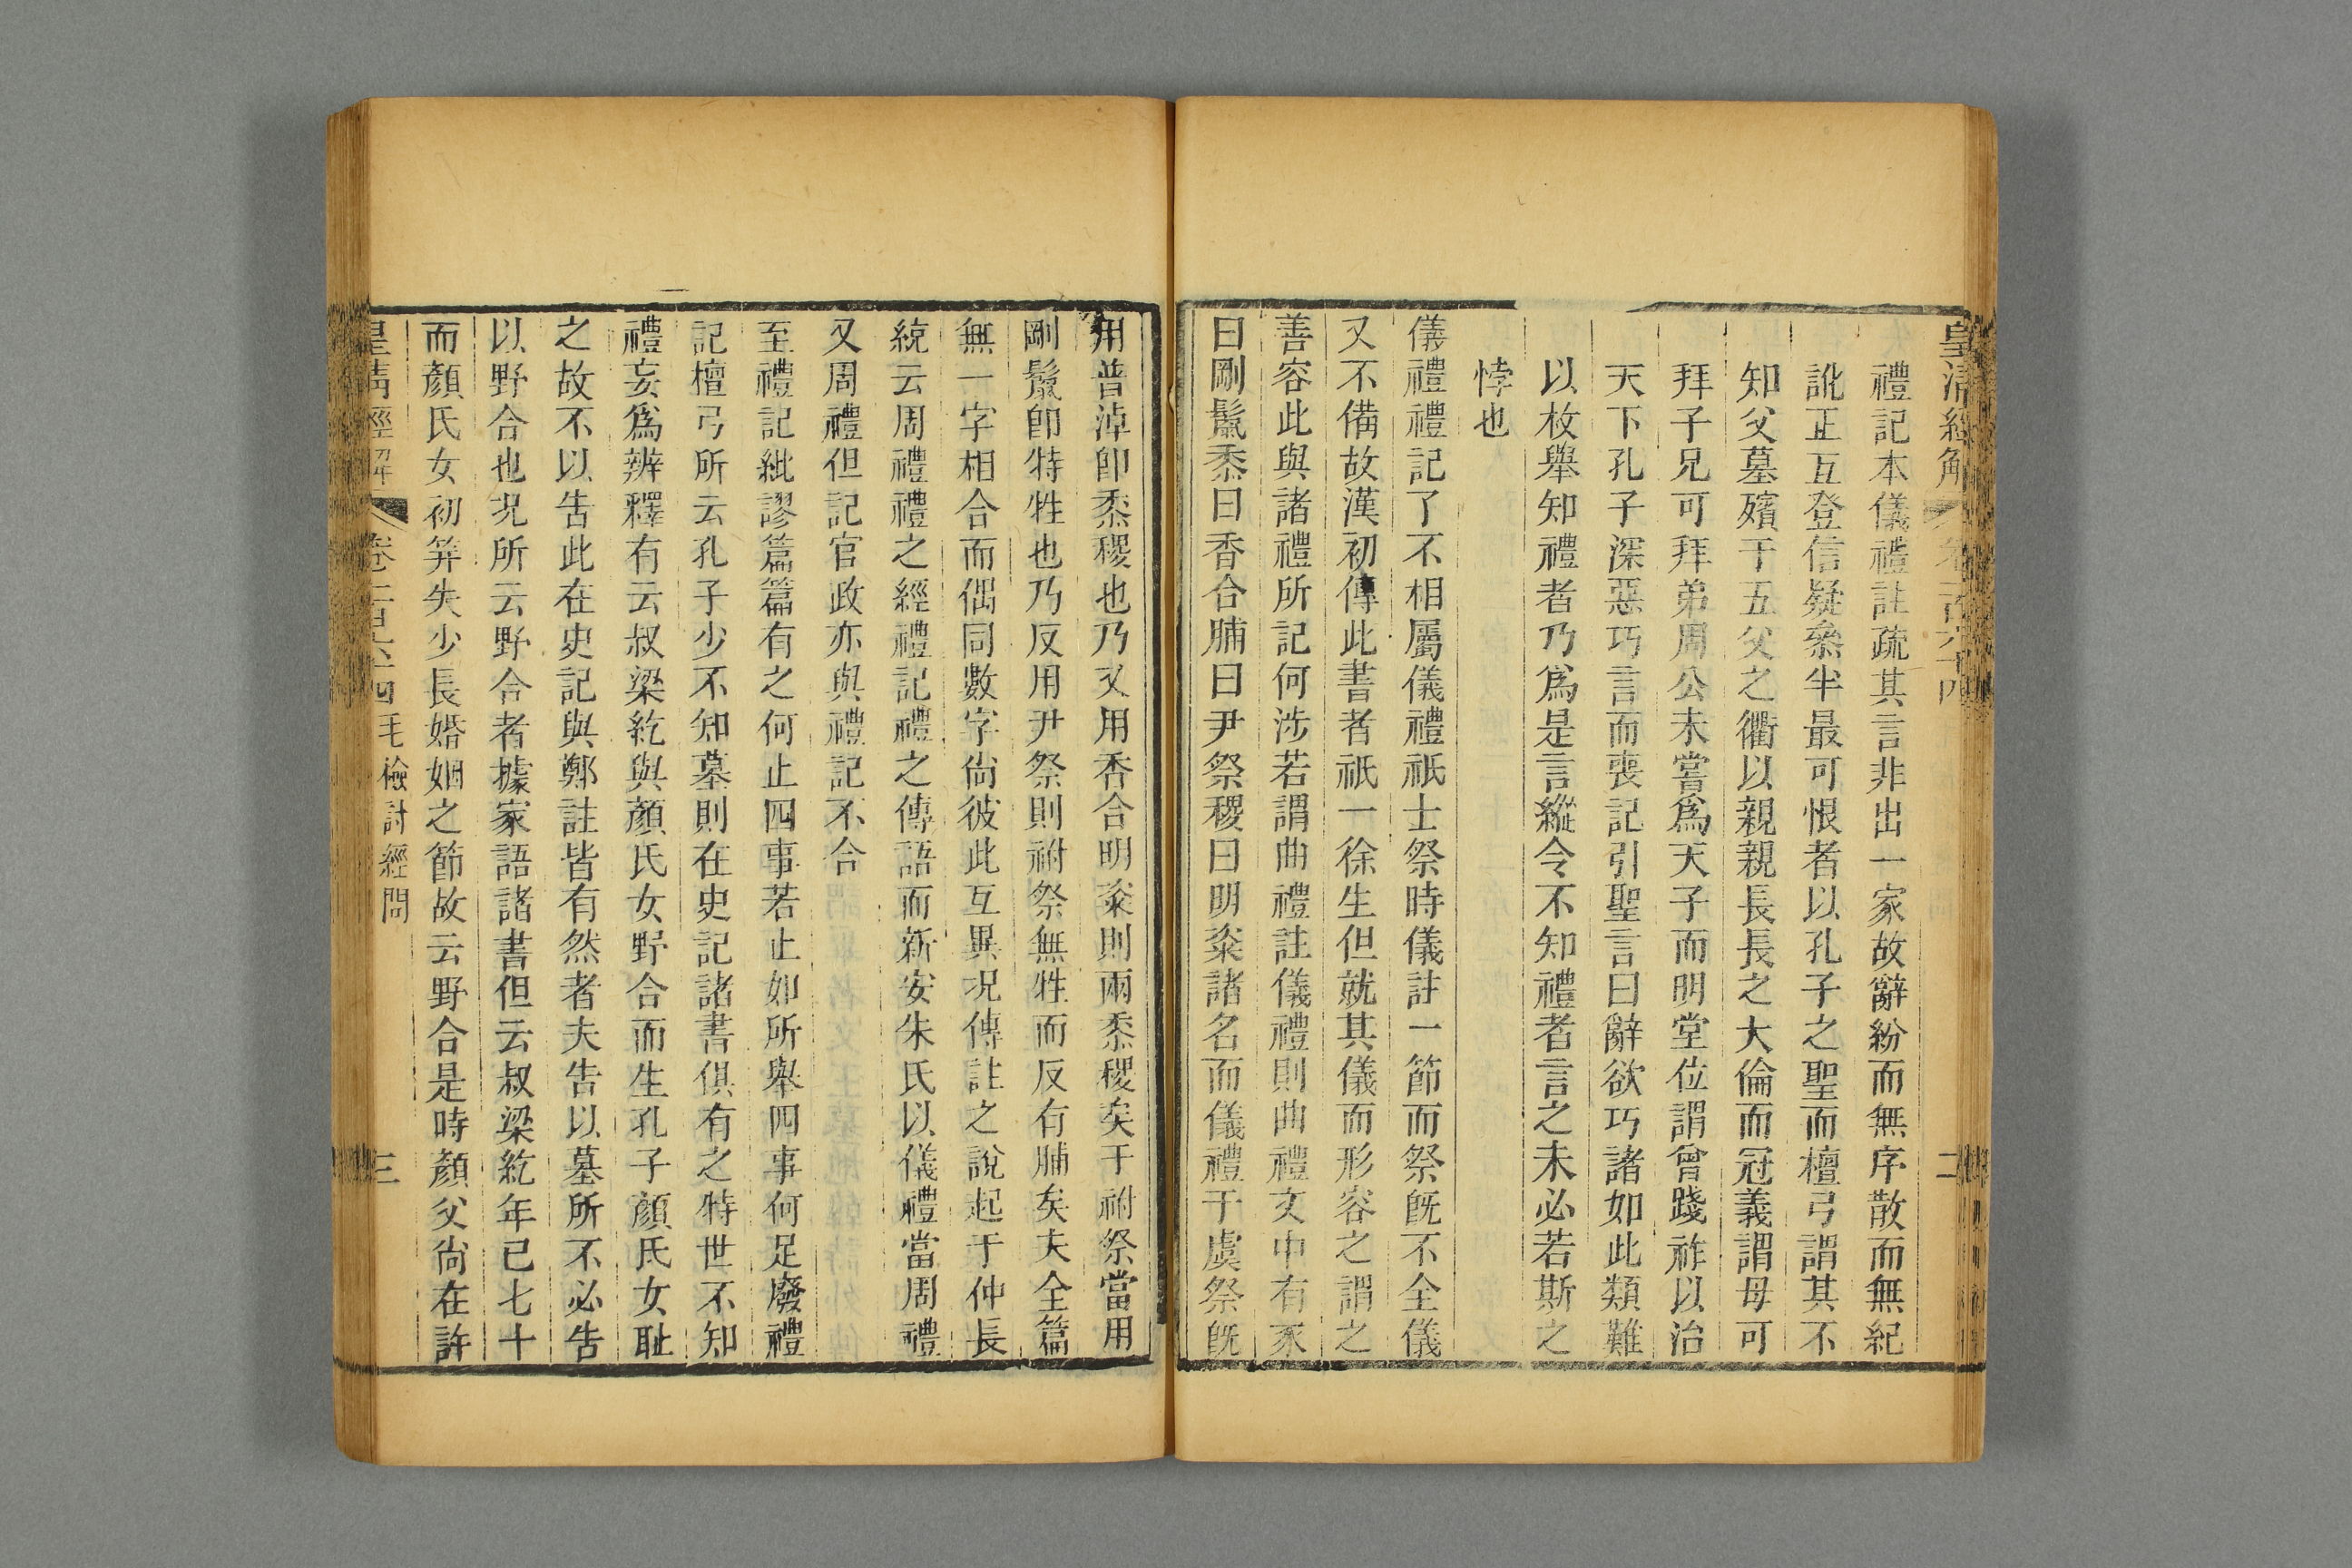 皇清經解 卷一百六十四 二
禮記本儀禮註疏其言非出一家故辭紛而無序散而無紀
訛正互登信疑叅半最可恨者以孔子之聖而檀弓謂其不
知父墓殯于五父之衢以親親長長之大倫而冠義謂母可
拜子兄可拜弟周公未嘗爲天子而明堂位謂曾踐祚以治
天下孔子深惡巧言而喪記引聖言曰辭欲巧諸如此類難
以枚舉知禮者乃爲是言縱令不知禮者言之未必若斯之
悖也
儀禮禮記了不相屬儀禮祇士祭時儀註一節而祭旣不全儀
又不備故漢初傳此書者祇一徐生但就其儀而形容之謂之
善容此與諸禮所記何涉若謂曲禮註儀禮則曲禮文中有豕
曰剛鬣黍曰香合脯曰尹祭稷曰明粢諸名而儀禮于虞祭旣
用普淖卽黍稷也乃又用香合明粢則兩黍稷矣于祔祭當用
剛鬣卽特牲也乃反用尹祭則祔祭無牲而反有脯矣夫全篇
無一字相合而偶同數字尙彼此互異况傳註之說起于仲長
統云周禮禮之經禮記禮之傳語而新安朱氏以儀禮當周禮
又周禮但記官政亦與禮記不合
至禮記紕謬篇篇有之何止四事若止如所舉四事何足廢禮
記檀弓所云孔子少不知墓則在史記諸書俱有之特世不知
禮妄爲辨釋有云叔梁紇與顏氏女野合而生孔子顏氏女耻
之故不以告此在史記與鄭註皆有然者夫告以墓所不必告
以野合也况所云野合者據家語諸書但云叔梁紇年已七十
而顏氏女初笄失少長婚姻之節故云野合是時顏父尙在許
皇清經解 卷一百六十四 毛檢討經問 三